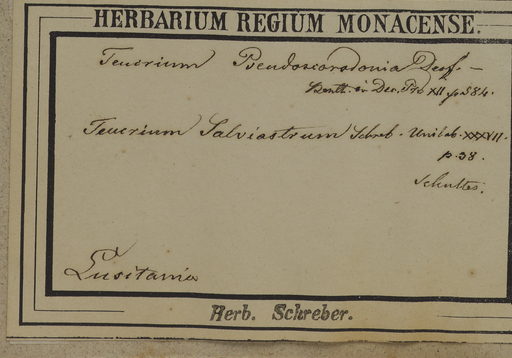 HERBARIUM REGIUM MONACENSE.
Teucrium Pseudoscorodonia Desf. —
Benth. in Dec. Pro XII. p. 584.
Teucrium Salviastrum Schreb. Unilab. XXXVII.
p. 38.
Schultes.
Lusitania
Herb. Schreber.